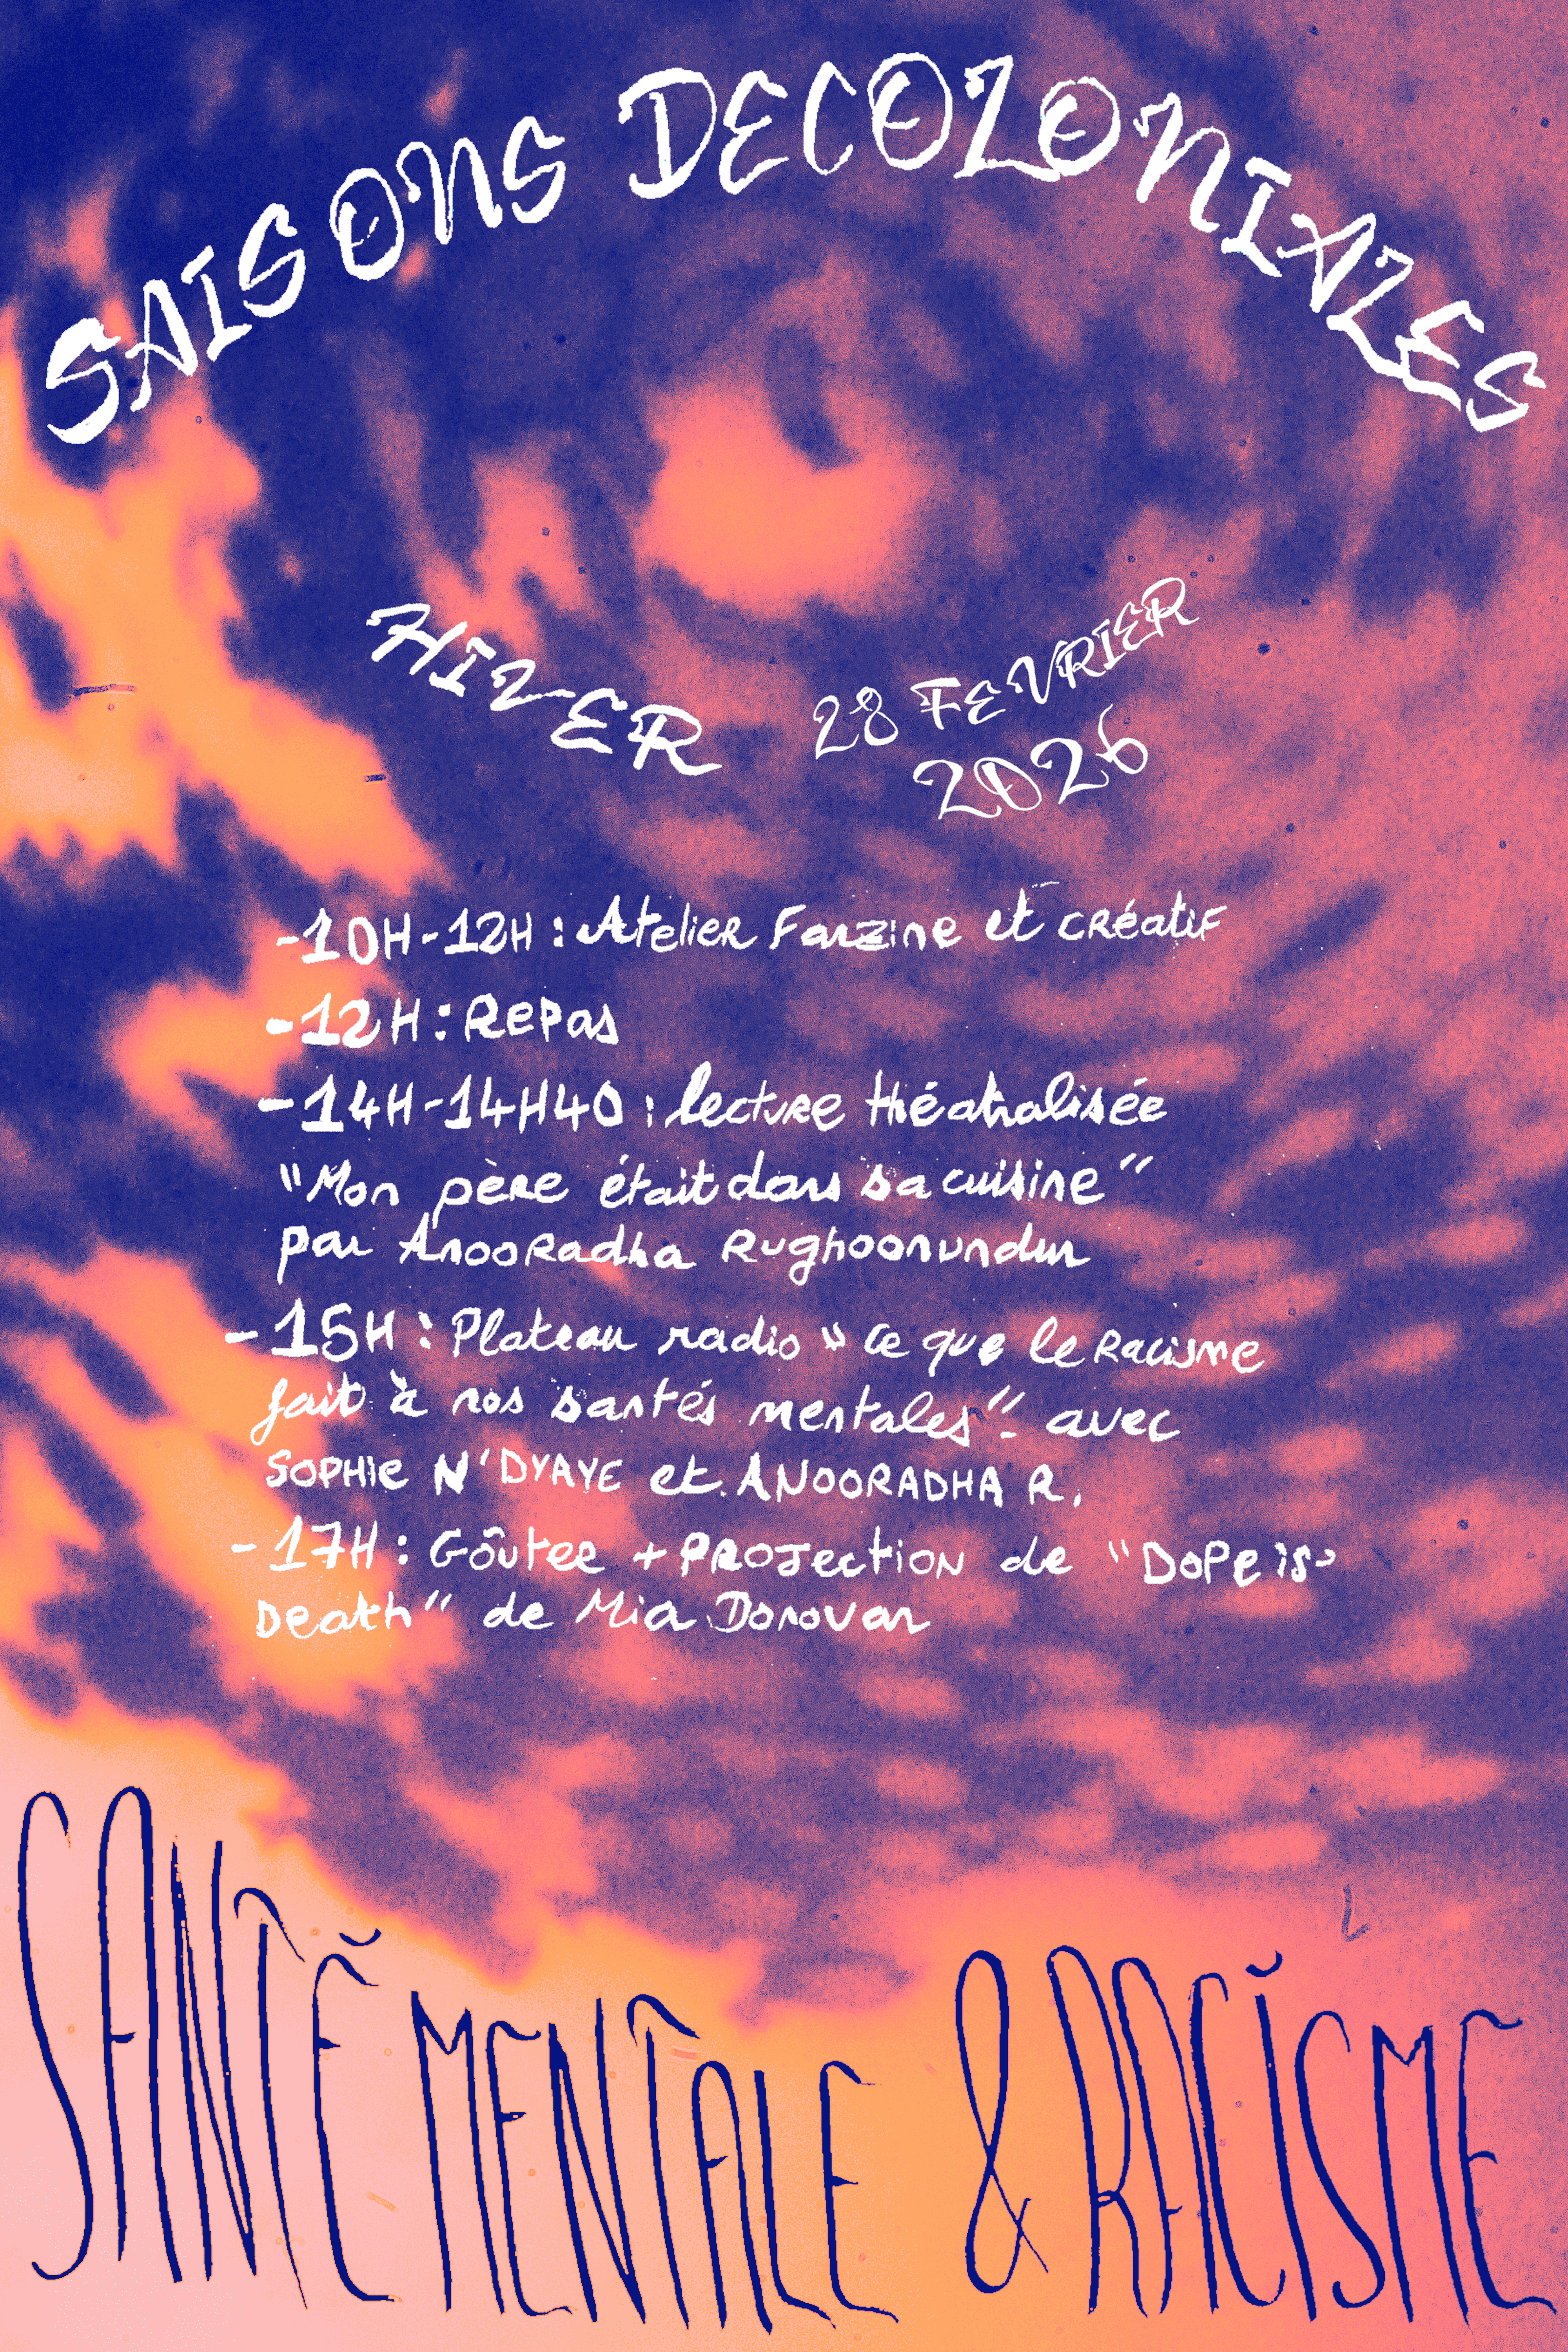 SAISONS DECOLONIALES
HIVER
28 FEVRIER
2026
-10H-12H : Atelier Fanzine et CRéatiF
-12H : Repas
-14H-14H40 : lecture théatralisée
"Mon père était dans sa cuisine"
par Anooradha Rughoonundun
-15H : Plateau radio "Ce que le Racisme
fait à nos santés mentales" - avec
SOPHIE N'DYAYE et ANOORADHA R.
-17H : Goûter + PROJECTION de "Dope is
Death" de Mia Donovan
SANTÉ MENTALE & RACISME